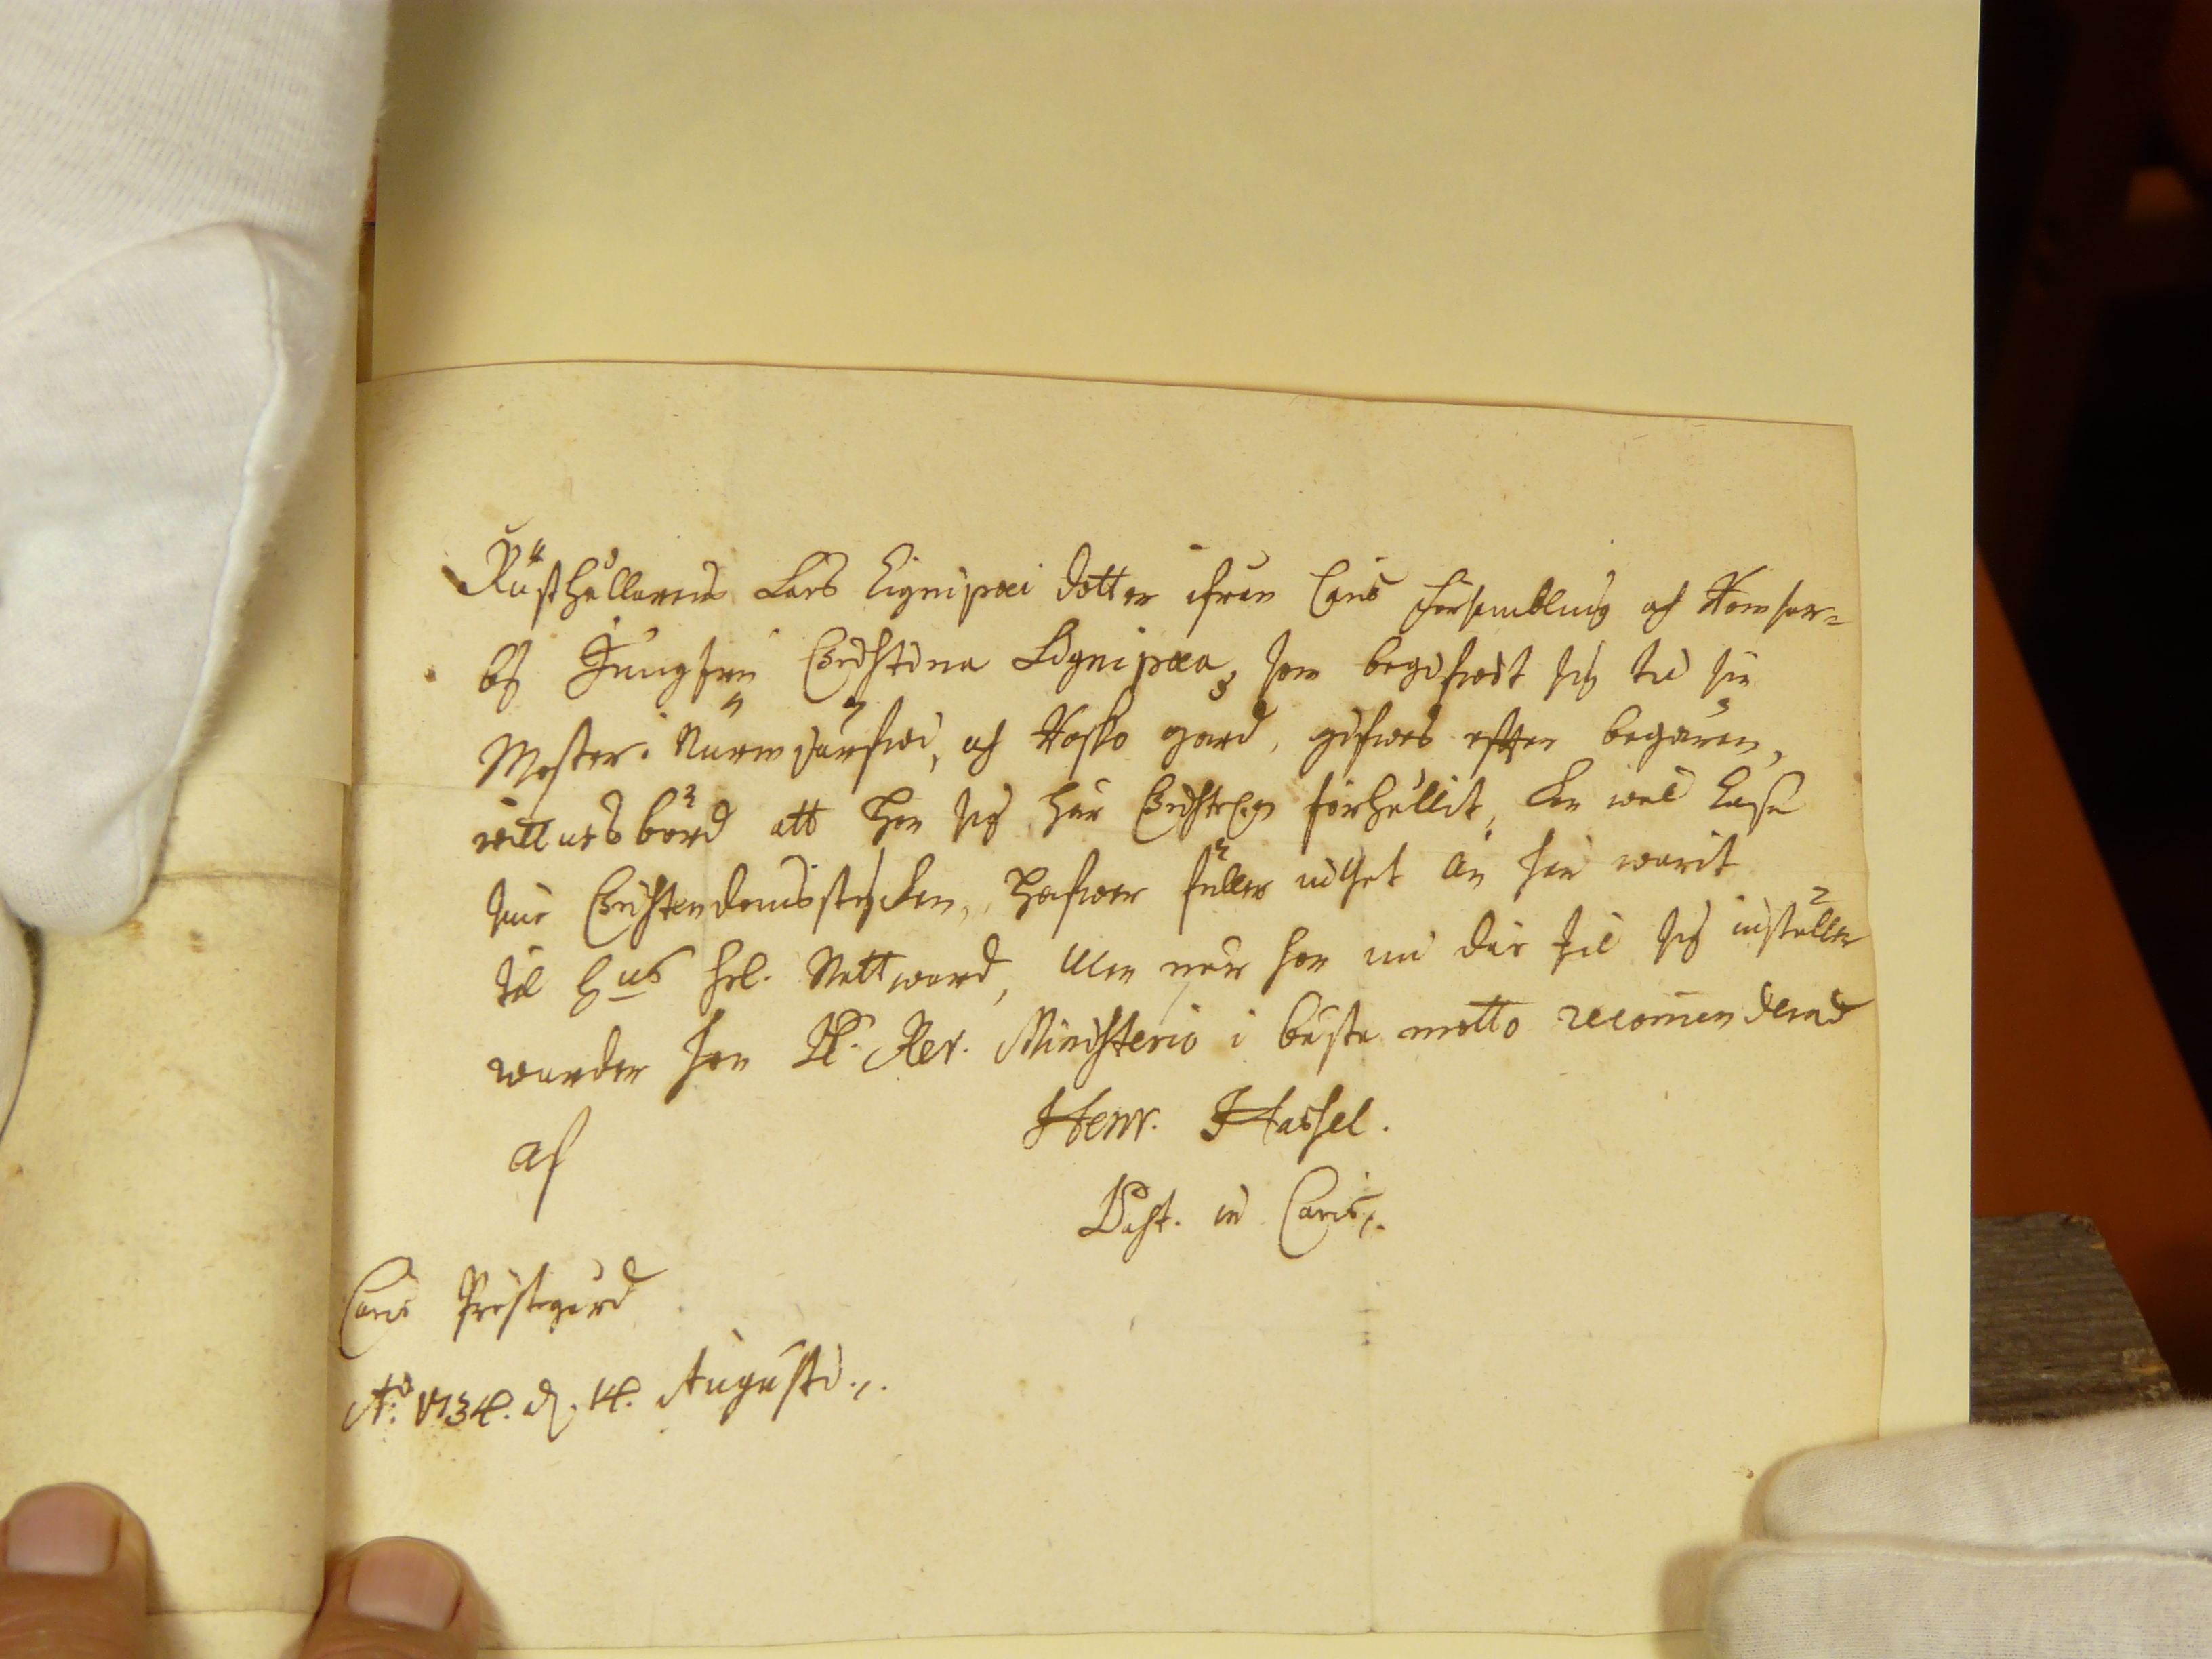 Rusthållarens Lars Lignipæi dotter ifrån Caris försambling och Romsar=
by Jungfru Christina Lignipæa, som begifwit sig til sin
Moster i Nurmijärfwi, och gård, gifwes efter begäran,
wittnesbörd att hon sig här Christel:n förhållit, kan wäl läsa
sine Christendomsstycken, hafwer eller intet än här warit
til H:ns hel. Nattward, Men när hon nu där til sig inställer
warder hon Pl. Rev. Ministerio i bästa motto recommenderad
af Henr. Hassel.
Past. in Caris.
Caris Prästegård
A:o 1734. d. 14. Augusti.